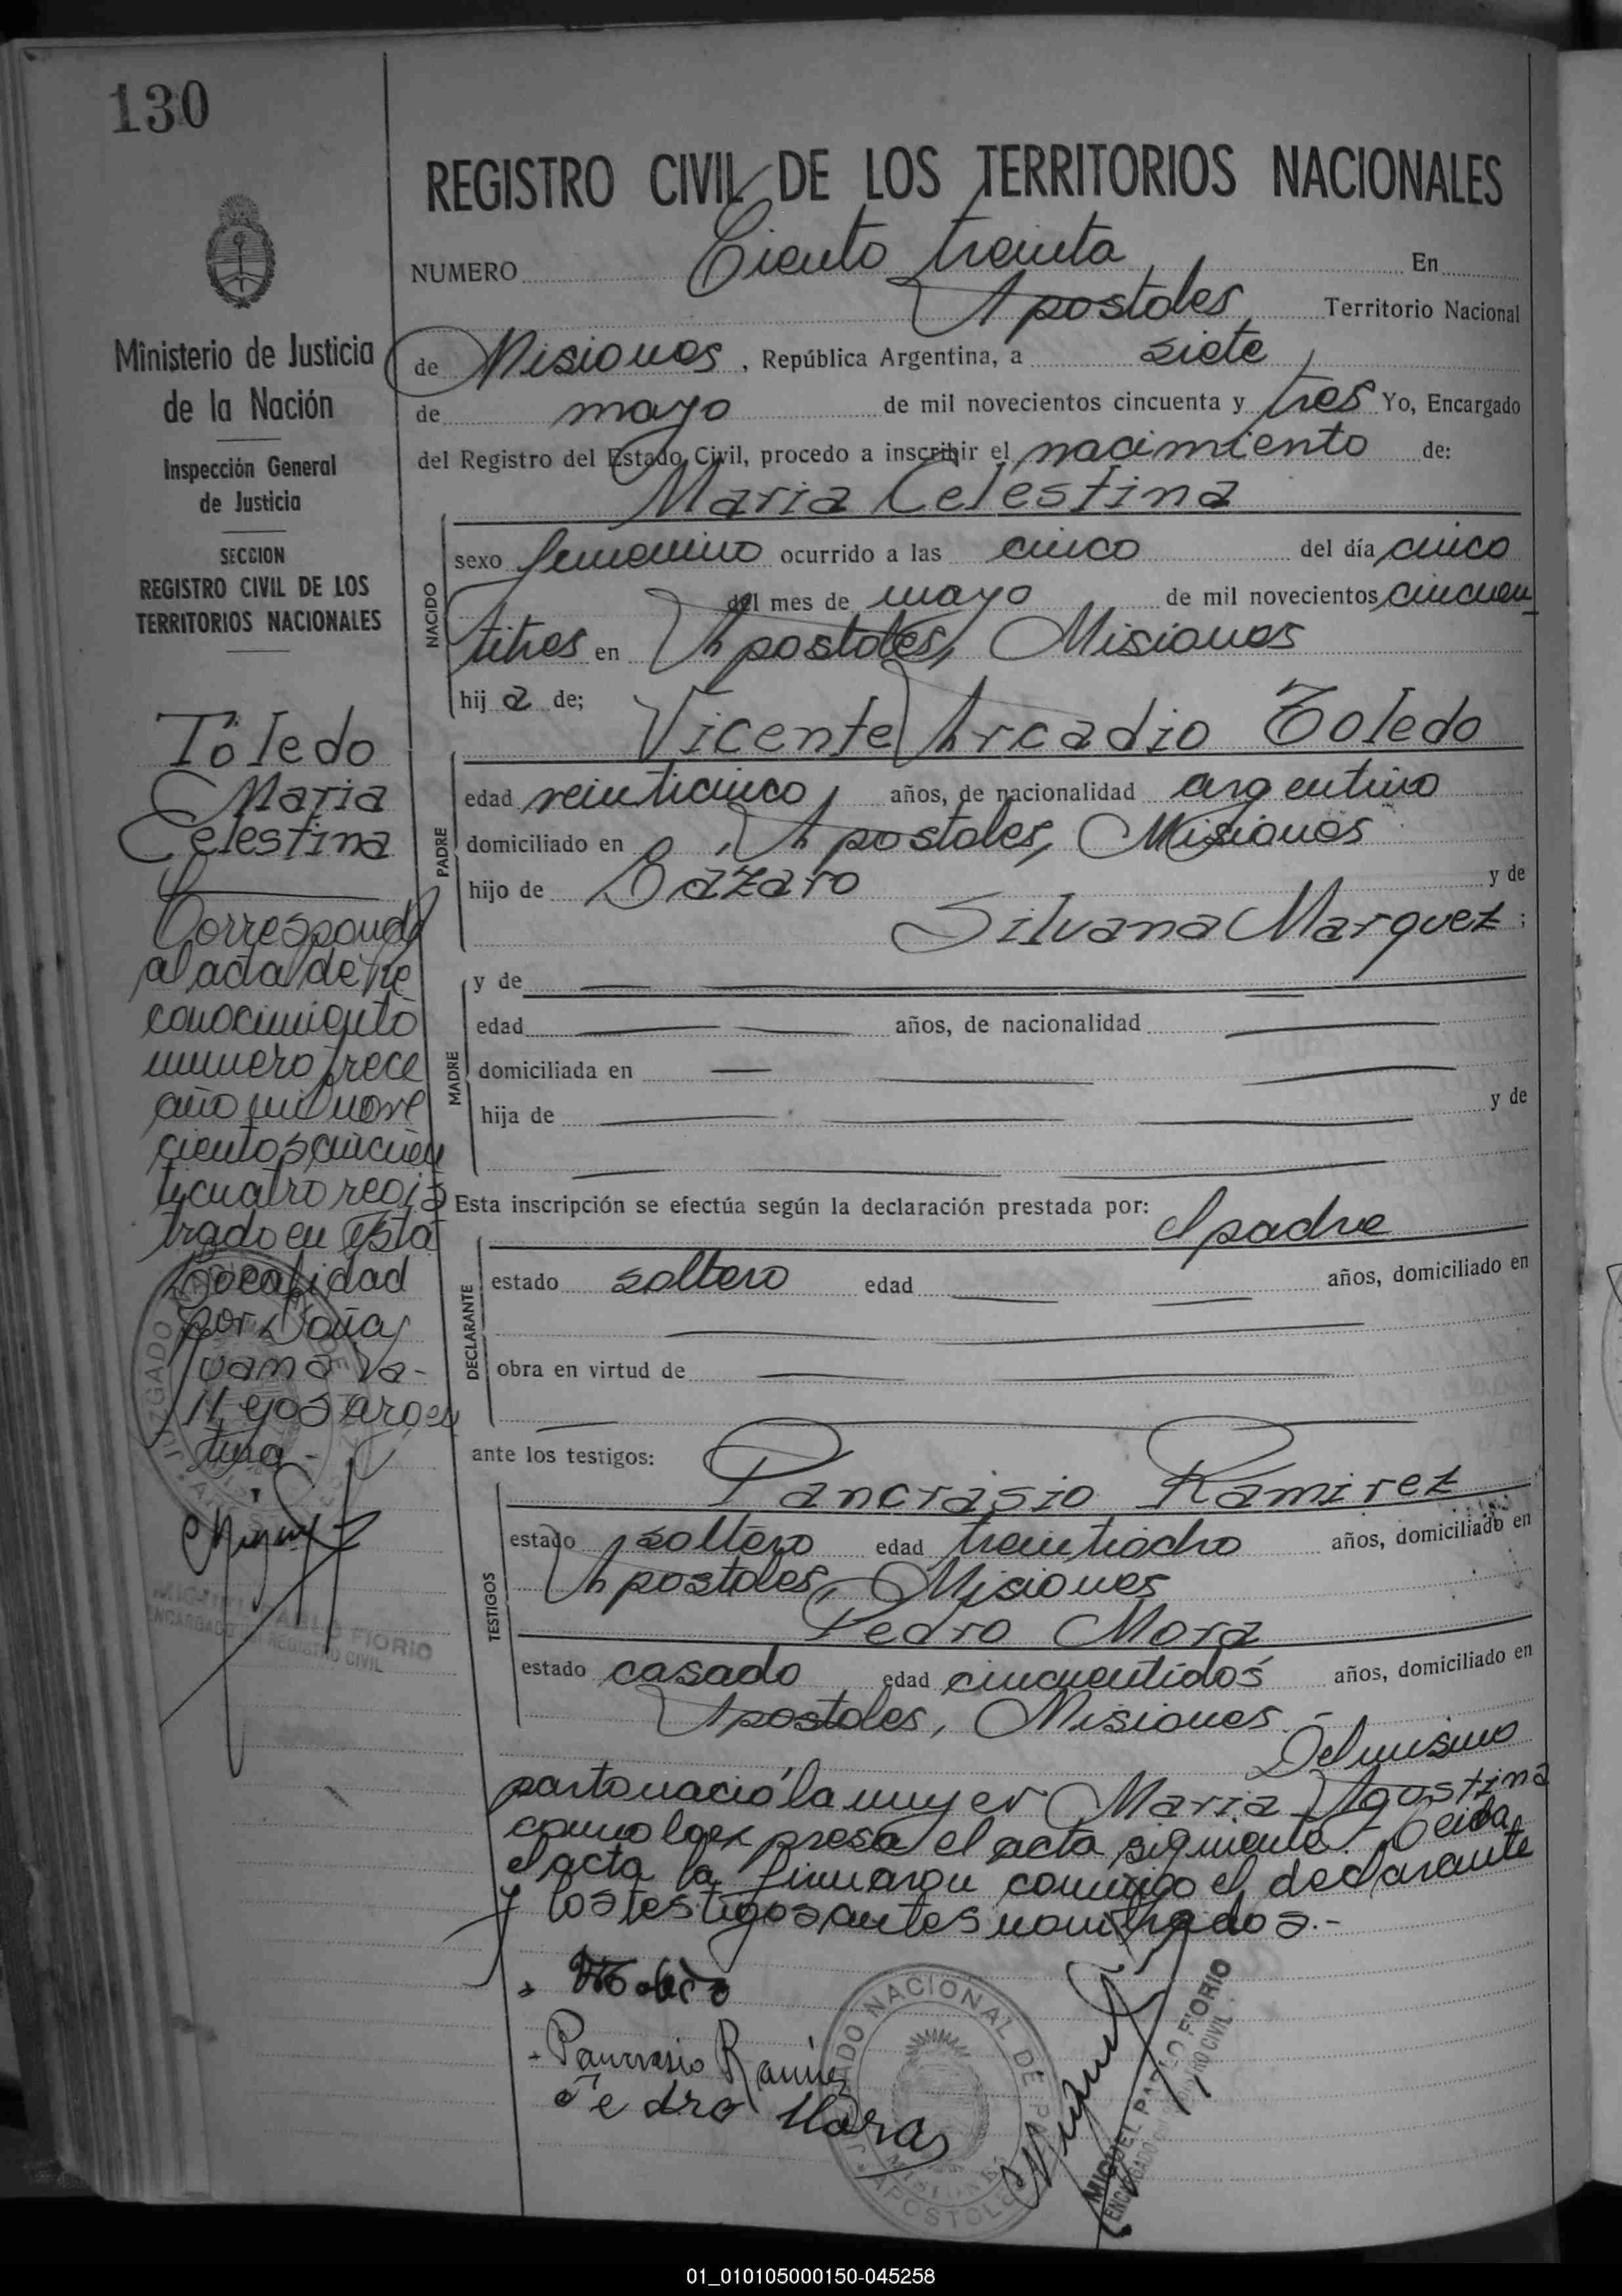 130
REGISTRO CIVIL DE LOS TERRITORIOS NACIONALES
NUMERO Ciento treinta En
Apostoles Territorio Nacional
de Misiones, República Argentina, a siete
de mayo de mil novecientos cincuenta y tres Yo, Encargado
del Registro del Estado Civil, procedo a inscribir el nacimiento de:
Maria Celestina
NACIDO
sexo femenino ocurrido a las cinco del día cinco
del mes de mayo de mil novecientos cincuen
titres en Apostoles, Misiones
hija de;
Vicente Arcadio Toledo
PADRE
edad veinticinco años, de nacionalidad argentino
domiciliado en Apostoles, Misiones
hijo de Lázaro y de
Silvana Marquez;
MADRE
y de
edad años, de nacionalidad
domiciliada en
hija de y de
Esta inscripción se efectúa según la declaración prestada por: el padre
DECLARANTE
estado soltero edad años, domiciliado en
obra en virtud de
ante los testigos:
Pancrasio Ramirez
TESTIGOS
estado soltero edad treintiocho años, domiciliado en
Apostoles, Misiones
Pedro Mora
estado casado edad cincuentidos años, domiciliado en
Apostoles, Misiones.-
Del mismo
parto nació la mujer Maria Agostina
como lo expresa el acta siguiente.- Leida
el acta la firmaron conmigo el declarante
y los testigos antes nombrados.-
Pancrasio Ramirez
Pedro Mora
JUZGADO NACIONAL DE PAZ
MISIONES
APOSTOLES
MIGUEL PABLO FIORIO
ENCARGADO del REGISTRO CIVIL
Ministerio de Justicia
de la Nación
Inspección General
de Justicia
SECCION
REGISTRO CIVIL DE LOS
TERRITORIOS NACIONALES
Toledo
Maria
Celestina
Corresponde
al acta de re
conocimiento
numero trece
año mil nove
cientos cincuen
ticuatro regis
trado en esta
Localidad
por Doña
Juana Va-
llejos argen
tina.-
MIGUEL PABLO FIORIO
ENCARGADO del REGISTRO CIVIL
01_010105000150-045258